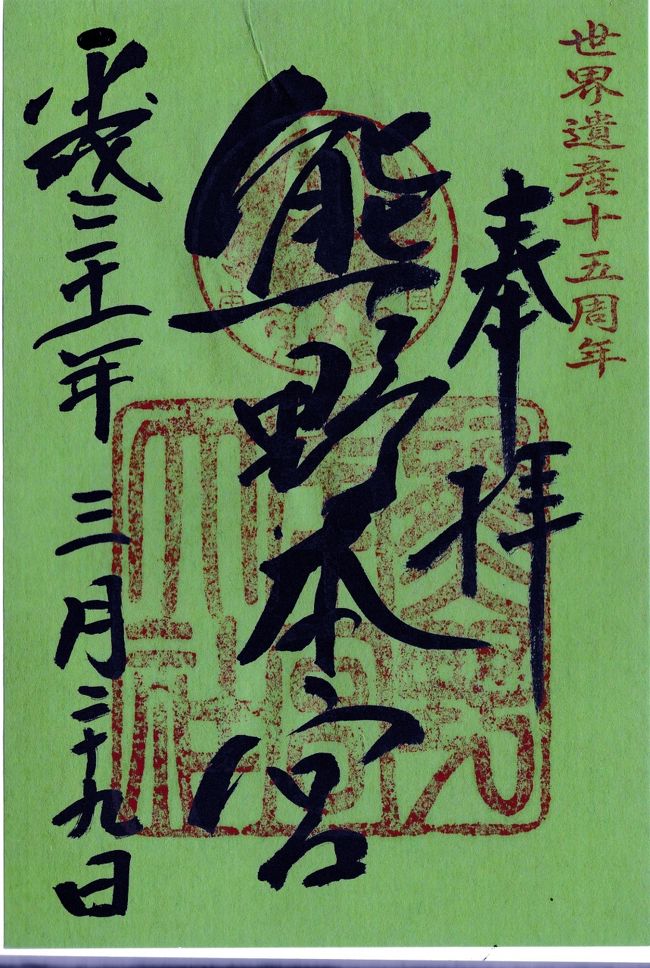 世界遺産十五周年
奉拝
熊野本宮
平成三十一年 三月二十九日